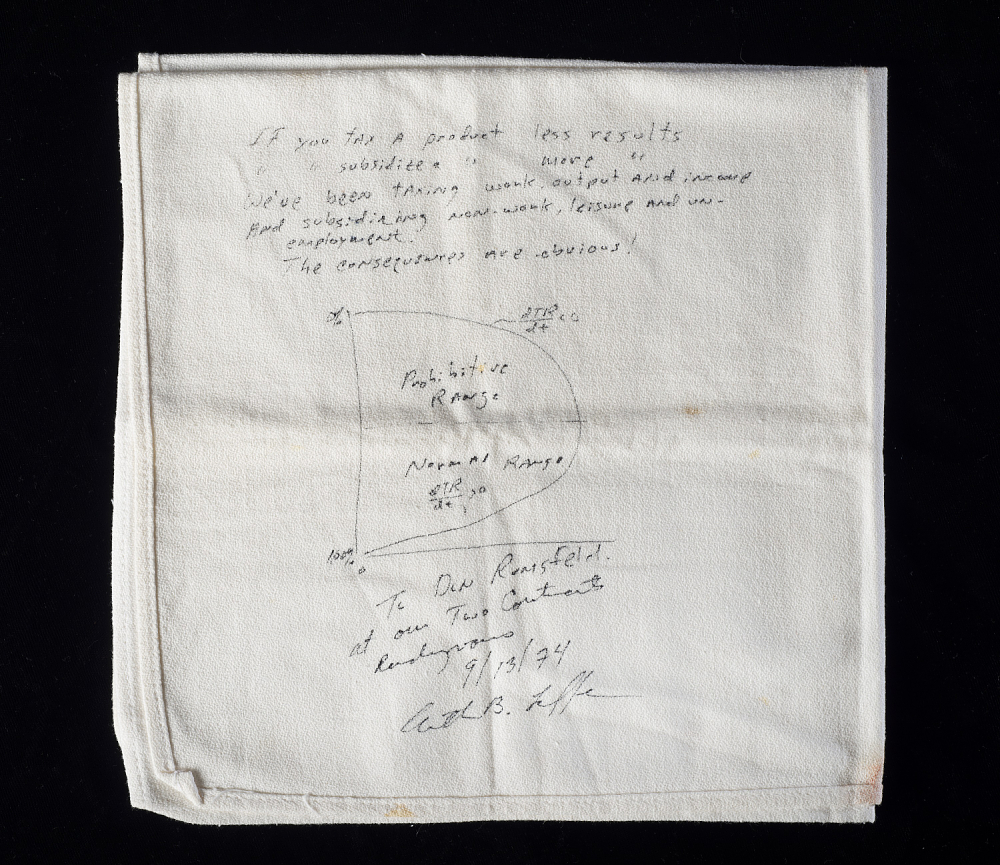 If you tax a product less results
" " subsidize a " more "
We've been taxing work, output and income
And subsidizing non-work, leisure and un-
employment.
The consequences are obvious!
0%
dTR/dt <0
Prohibitive
Range
Normal Range
dTR/dt >0
100%
0
To Don Rumsfeld.
at our Two Continents
Rendezvous
9/13/74
Arthur B. Laffer